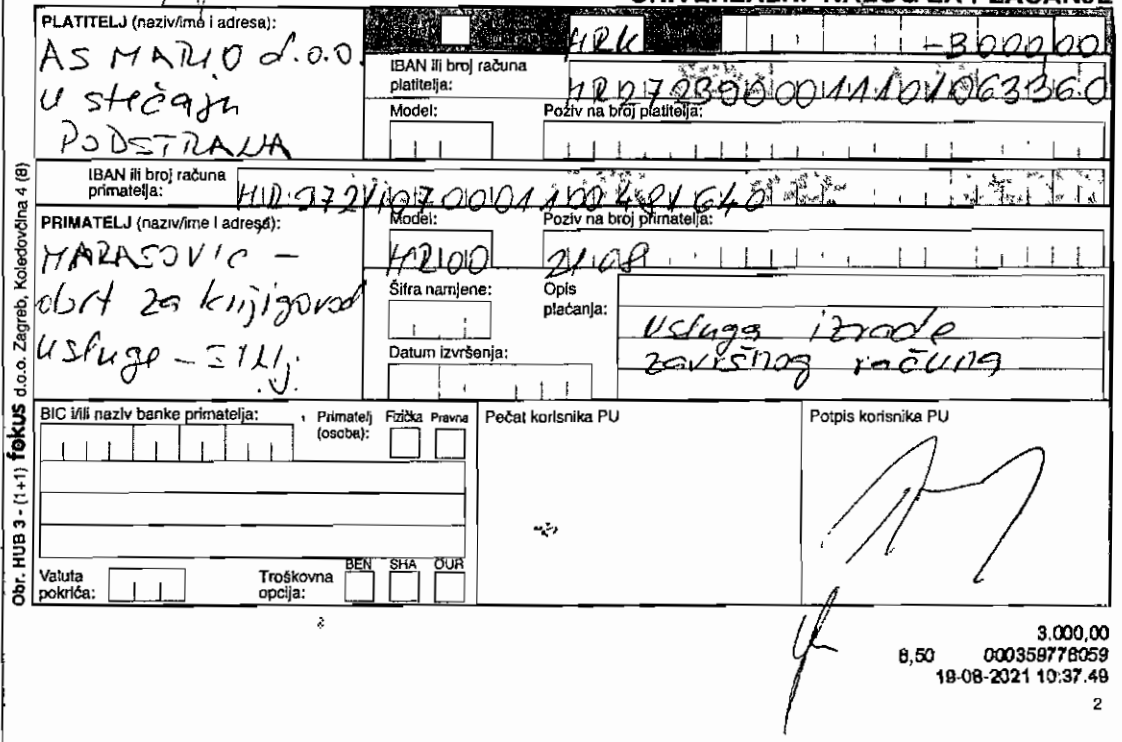 PLATITELJ (naziv/ime i adresa):
AS MARIO d.o.o.
u stečaju
PODSTRANA
HRK
-3000,00
IBAN ili broj računa
platitelja:
Model:
Poziv na broj platitelja:
IBAN ili broj računa
primatelja:
PRIMATELJ (naziv/ime i adresa):
MARASOVIĆ -
obrt za knjigovod
usluge -
Model:
Poziv na broj primatelja:
HR00
21-08
Šifra namjene:
Opis
plaćanja:
usluga izrade
završnog računa
Datum izvršenja:
BIC i/ili naziv banke primatelja:
Primatelj
(osoba):
Fizička
Pravna
Pečat korisnika PU
Potpis korisnika PU
Valuta
pokrića:
Troškovna
opcija:
BEN
SHA
OUR
Obr. HUB 3 - (1+1) fokus d.o.o. Zagreb, Koledovčina 4 (8)
3.000,00
000359778059
19-08-2021 10:37.49
2